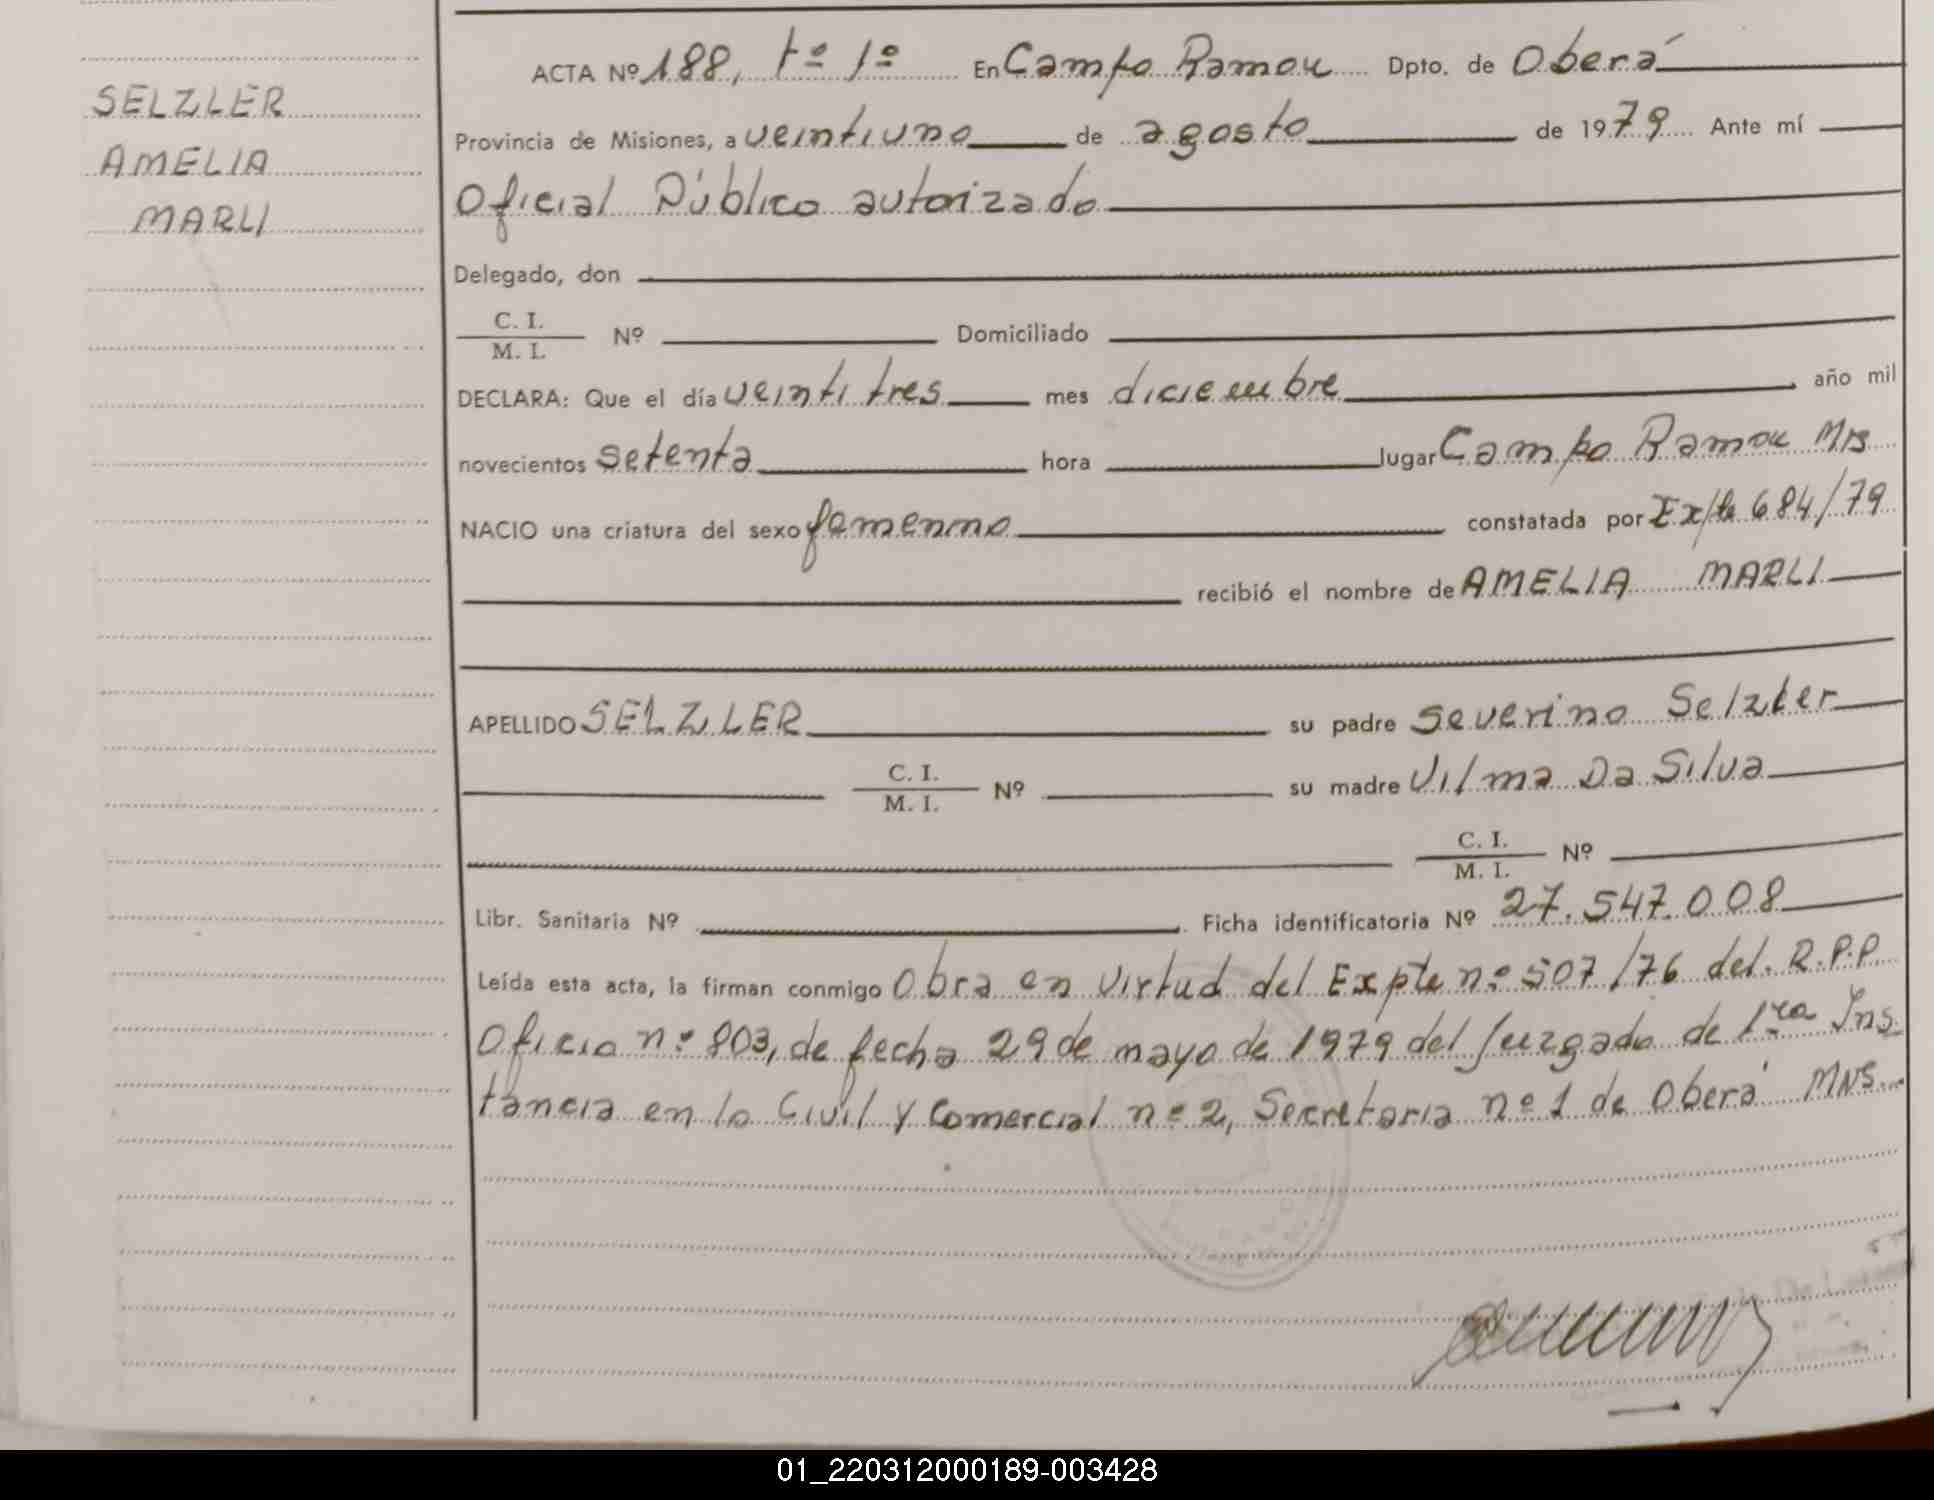 SELZLER
AMELIA
MARLI
ACTA Nº 188, tº 1º En Campo Ramon Dpto. de Oberá
Provincia de Misiones, a veintiuno de agosto de 1979 Ante mí
Oficial Público autorizado
Delegado, don
C. I.
M. I. Nº Domiciliado
DECLARA: Que el día veinti tres mes diciembre año mil
novecientos setenta hora lugar Campo Ramon Mns
NACIO una criatura del sexo femenino constatada por Expte 684/79
recibió el nombre de AMELIA MARLI
APELLIDO SELZLER su padre Severino Selzler
C. I.
M. I. Nº su madre Vilma Da Silva
C. I.
M. I. Nº
Libr. Sanitaria Nº Ficha identificatoria Nº 27.547.008
Leída esta acta, la firman conmigo Obra en virtud del Expte nº 507/76 del. R.P.P.
Oficio nº 803, de fecha 29 de mayo de 1979 del Juzgado de 1ra Ins
tancia en lo Civil y Comercial nº 2, Secretaria nº 1 de Oberá MNS.
01_220312000189-003428